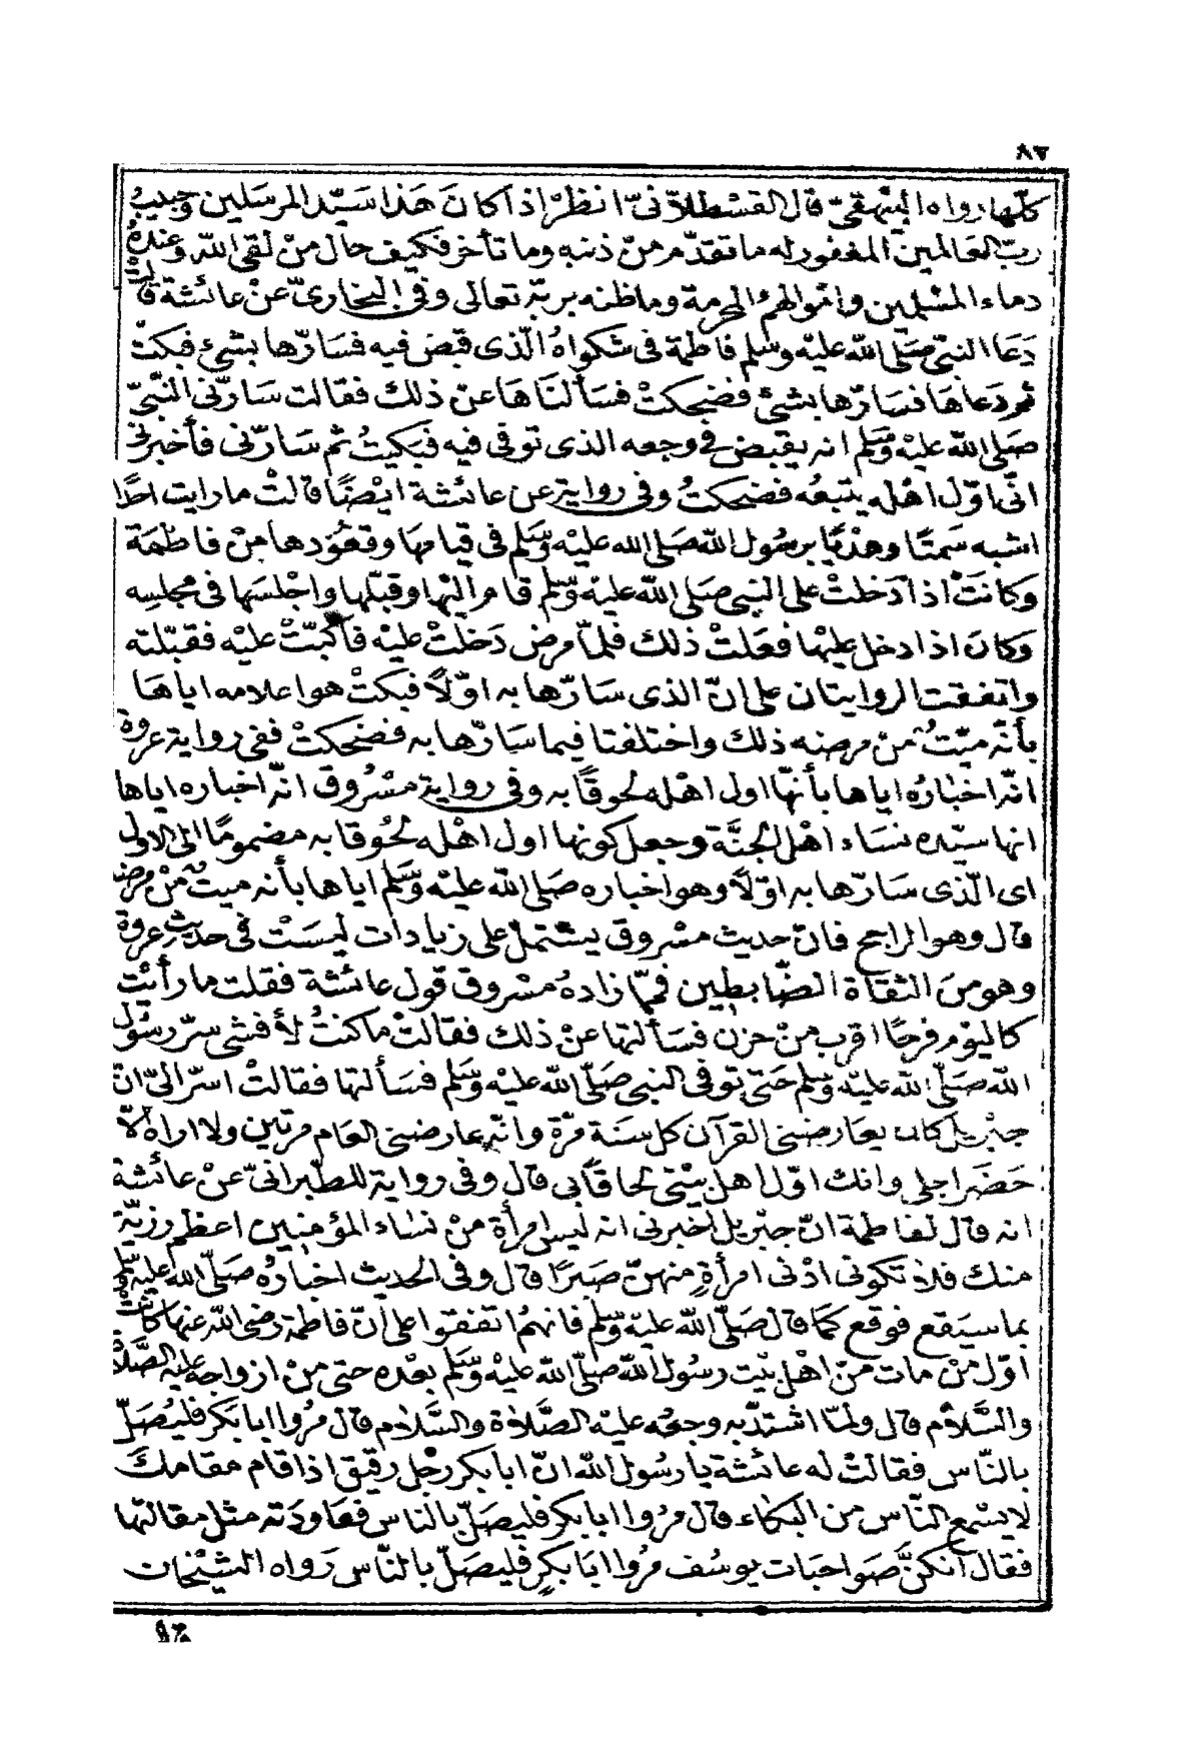 ٨٢
كلّها رواه البيهقيّ قال القسطلانيّ انظر اذا كان هَذا سَيّد المرسَلين وحبيبُ
ربّ العَالمين المغفور له ما تقدّم من ذنبه وما تأخر فكيف حال منْ لقى اللّه وعندهُ
دماء المسْلمين واموالهمُ المحرمة وما ظنه بربّه تعالى وفى البخاريّ عنْ عائشة قالتْ
دَعَا النبىّ صَلى اللّه عليْه وسَلم فاطمة فى شكواهُ الّذى قبض فيه فسَارّها بشئ فبكتْ
ثم دَعَاهَا فسَارّها بشئ فضحكتْ فسَألنَاهَا عنْ ذلك فقالت سَارّنى النّبىّ
صَلى اللّه عليْه وسَلم انه يقبض فى وجعه الذى توفى فيه فبَكيتُ ثم سَارّنى فأخبرنى
انّى اوّل اهْله يتبعُه فضحكتُ وفى رواية عن عائشة ايْضًا قالتْ ما رايت احدًا
اشبه سَمتًا وهدْيًا برسُول اللّه صَلى الله عليْه وسَلم فى قيامهَا وقعُودها منْ فاطمَة
وكانَتْ اذا دَخلتْ على النبى صَلى اللّه عليْه وسَلم قام اليْها وقبّلها واجْلسَها فى مجلسِه
وكانَ اذا دخل عليْها فعَلتْ ذلك فلمّا مرض دَخلتْ عليْه فأكبّتْ عليْه فقبّلته
واتفقت الروايتان على انّ الذى سَارّها به اوّلاً فبكتْ هو اعلامه اياهَا
بأنّه ميّتٌ من مرضه ذلك واختلفتا فيما سَارّها به فضحكتْ ففى رواية عروة
انّه اخبَارُه اياها بأنّها اول اهْله لحوقًا به وفى رواية مسْرُوق انّه اخباره اياها
انها سيّده نسَاء اهْل الجنَّة وجعل كونها اول اهْله لحُوقا به مضمومًا الى الاولى
اى الّذى سَارّها به اوّلاً وهو اخباره صَلى اللّه عليْه وسَلم اياها بأنه ميتٌ منْ مرضه
قال وهو الراجح فانّ حديث مسْروق يشتمل على زيادات ليسَتْ فى حديث عروة
وهو منَ الثقاة الضّابطين فمّا زادهُ مسْروق قول عائشة فقلت ما رأيْت
كاليوْم فرحًا اقرب منْ حزن فسَألتها عنْ ذلك فقالتْ ما كنتُ لأفشى سرّ رسُول
اللّه صَلّى اللّه عليْه وسَلم حَتى توفى النبى صَلّى اللّه عليْه وسَلم فسَألتها فقالتْ اسَرّ الىّ انّ
جبْريل كان يعَارضنى القرآن كل سَنة مرّة وانّه عارضنى العَام مرتين ولا اراه الاّ
حَضَر اجلى وانك اوّل اهل بيْتى لحاقًا بى قال وفى رواية للطّبرانىّ عنْ عائشة
انه قال لفاطمة انّ جبْريل اخبرنى انه ليس امرأة منْ نسَاء المؤمنين اعظم رزيّة
منك فلا تكونى ادْنى امرأةٍ منهنّ صَبرًا قال وفى الحديث اخبارُه صَلّى اللّه عليْه وسَلم
بما سيَقع فوقع كمَا قال صَلّى اللّه عليْه وسَلم فانهمُ اتفقوا على انّ فاطمة رضى اللّه عنها كانتْ
اوّل منْ مات منْ اهْل بيْت رسُول اللّه صلّى اللّه عليْه وسَلم بعْده حتى منْ ازواجه عليْه الصَّلاة
والسَّلام قال ولمّا اشتدّ به وجعُه عليْه الصَّلاة والسَّلام قال مرُوا ابا بَكر فليُصَلّ
بالنّاس فقالتْ له عائشة يا رسُول اللّه انّ ابا بكر رجُل رقيق اذا قام مقامكَ
لا يسْمع النّاس من البكاء قال مرُوا ابا بكر فليصَلّ بالناس فعَاودَته مثل مقالتها
فقال انكنَّ صَواحبَات يوسُف مرُوا ابَا بكرٍ فليصَلّ بالنّاس رَواه الشيْخان